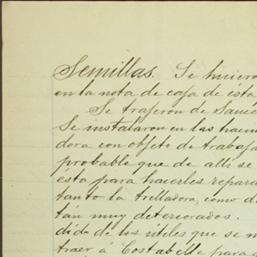 Semillas. Se hiciero
en la nota de caja de ésta
Se trajeron de Sauce
Se instalaron en las hacien
dora con objeto de trabaja
probable que de allí se
ésta para hacerles repara
tanto la trilladora, como d
tán muy deteriorados.
dida de los útiles que se n
traer á Costabella para